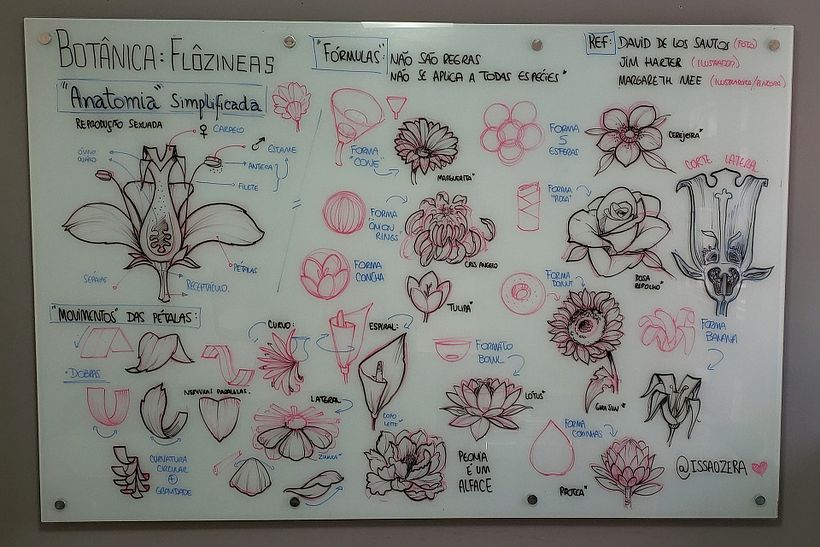 BOTÂNICA: FLÔZINEAS
"FÓRMULAS":
NÃO SÃO REGRAS
NÃO SE APLICA A TODAS ESPÉCIES"
REF:
DAVID DE LOS SANTOS (FOTO)
JIM HARTER (ILUSTRADOR)
MARGARETH MEE (ILUSTRADORA/PINTORA)
"Anatomia" Simplificada
REPRODUÇÃO SEXUADA
♀ CARPELO
♂ ESTAME
ANTERA
FILETE
PÉTALAS
SÉPALAS
RECEPTÁCULO
FORMA
"CONE"
MARGUERITA"
FORMA
5
ESFERAS
CEREJEIRA"
CORTE LATERAL
FORMA
"ONION
RINGS"
CRIS ANGELO
FORMA
"ROSA"
ROSA
REPOLHO"
FORMA
CONCHA
TULIPA"
FORMA
DONUT
GIRA SUN"
FORMA
BANANA
"MOVIMENTOS" DAS PÉTALAS:
CURVO:
ESPIRAL:
COPO
LEITE"
DOBRAS
NERVURAS PARALELAS.
LATERAL
ZINNIA"
CURVATURA
CIRCULAR
+
GRAVIDADE
FORMATO
BOWL
LÓTUS"
PEONIA
É UM
ALFACE
FORMA
COXINHAS
PROTEA"
@ISSAOZERA